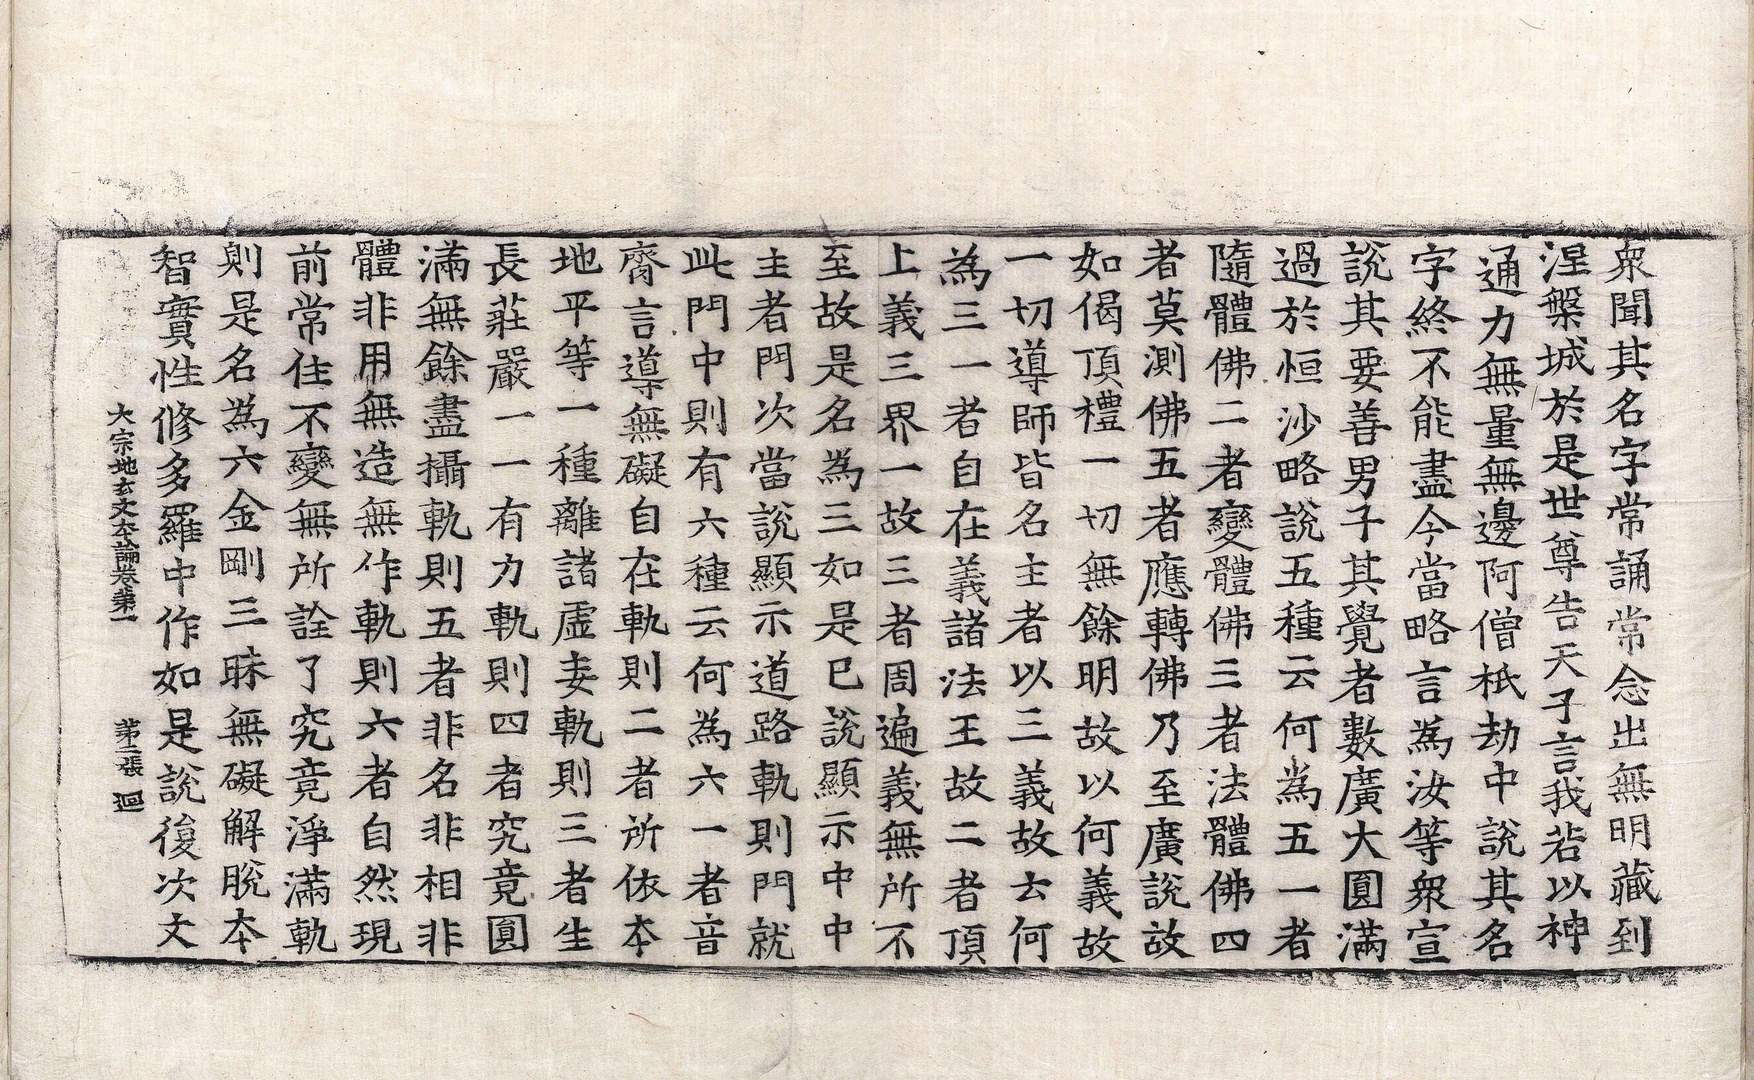 衆聞其名字常誦常念出無明藏到
涅槃城於是世尊告天子言我若以神
通力無量無邊阿僧祇劫中說其名
字終不能盡今當略言為汝等衆宣
說其要善男子其覺者數廣大圓滿
過於恒沙略說五種云何為五一者
隨體佛二者變體佛三者法體佛四
者莫測佛五者應轉佛乃至廣說故
如偈頂禮一切無餘明故以何義故
一切導師皆名主者以三義故去何
為三一者自在義諸法王故二者頂
上義三界一故三者周遍義無所不
至故是名為三如是已說顯示中中
主者門次當說顯示道路軌則門就
此門中則有六種云何為六一者音
齊言導無礙自在軌則二者所依本
地平等一種離諸虛妄軌則三者生
長莊嚴一一有力軌則四者究竟圓
滿無餘盡攝軌則五者非名非相非
體非用無造無作軌則六者自然現
前常住不變無所詮了究竟淨滿軌
則是名為六金剛三昧無礙解脫本
智實性修多羅中作如是說復次文
大宗地玄文本論卷第一 第二張 迴